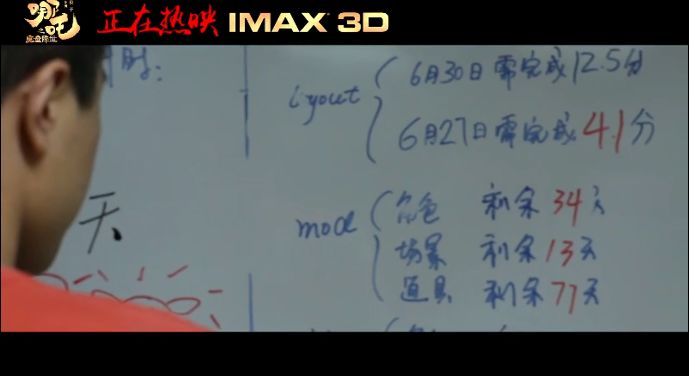 哪吒
之
魔童降世
正在热映 IMAX 3D
时:
天
layout
6月30日需完成12.5分
6月27日需完成4.1分
mode
角色 剩余34天
场景 剩余13天
道具 剩余77天